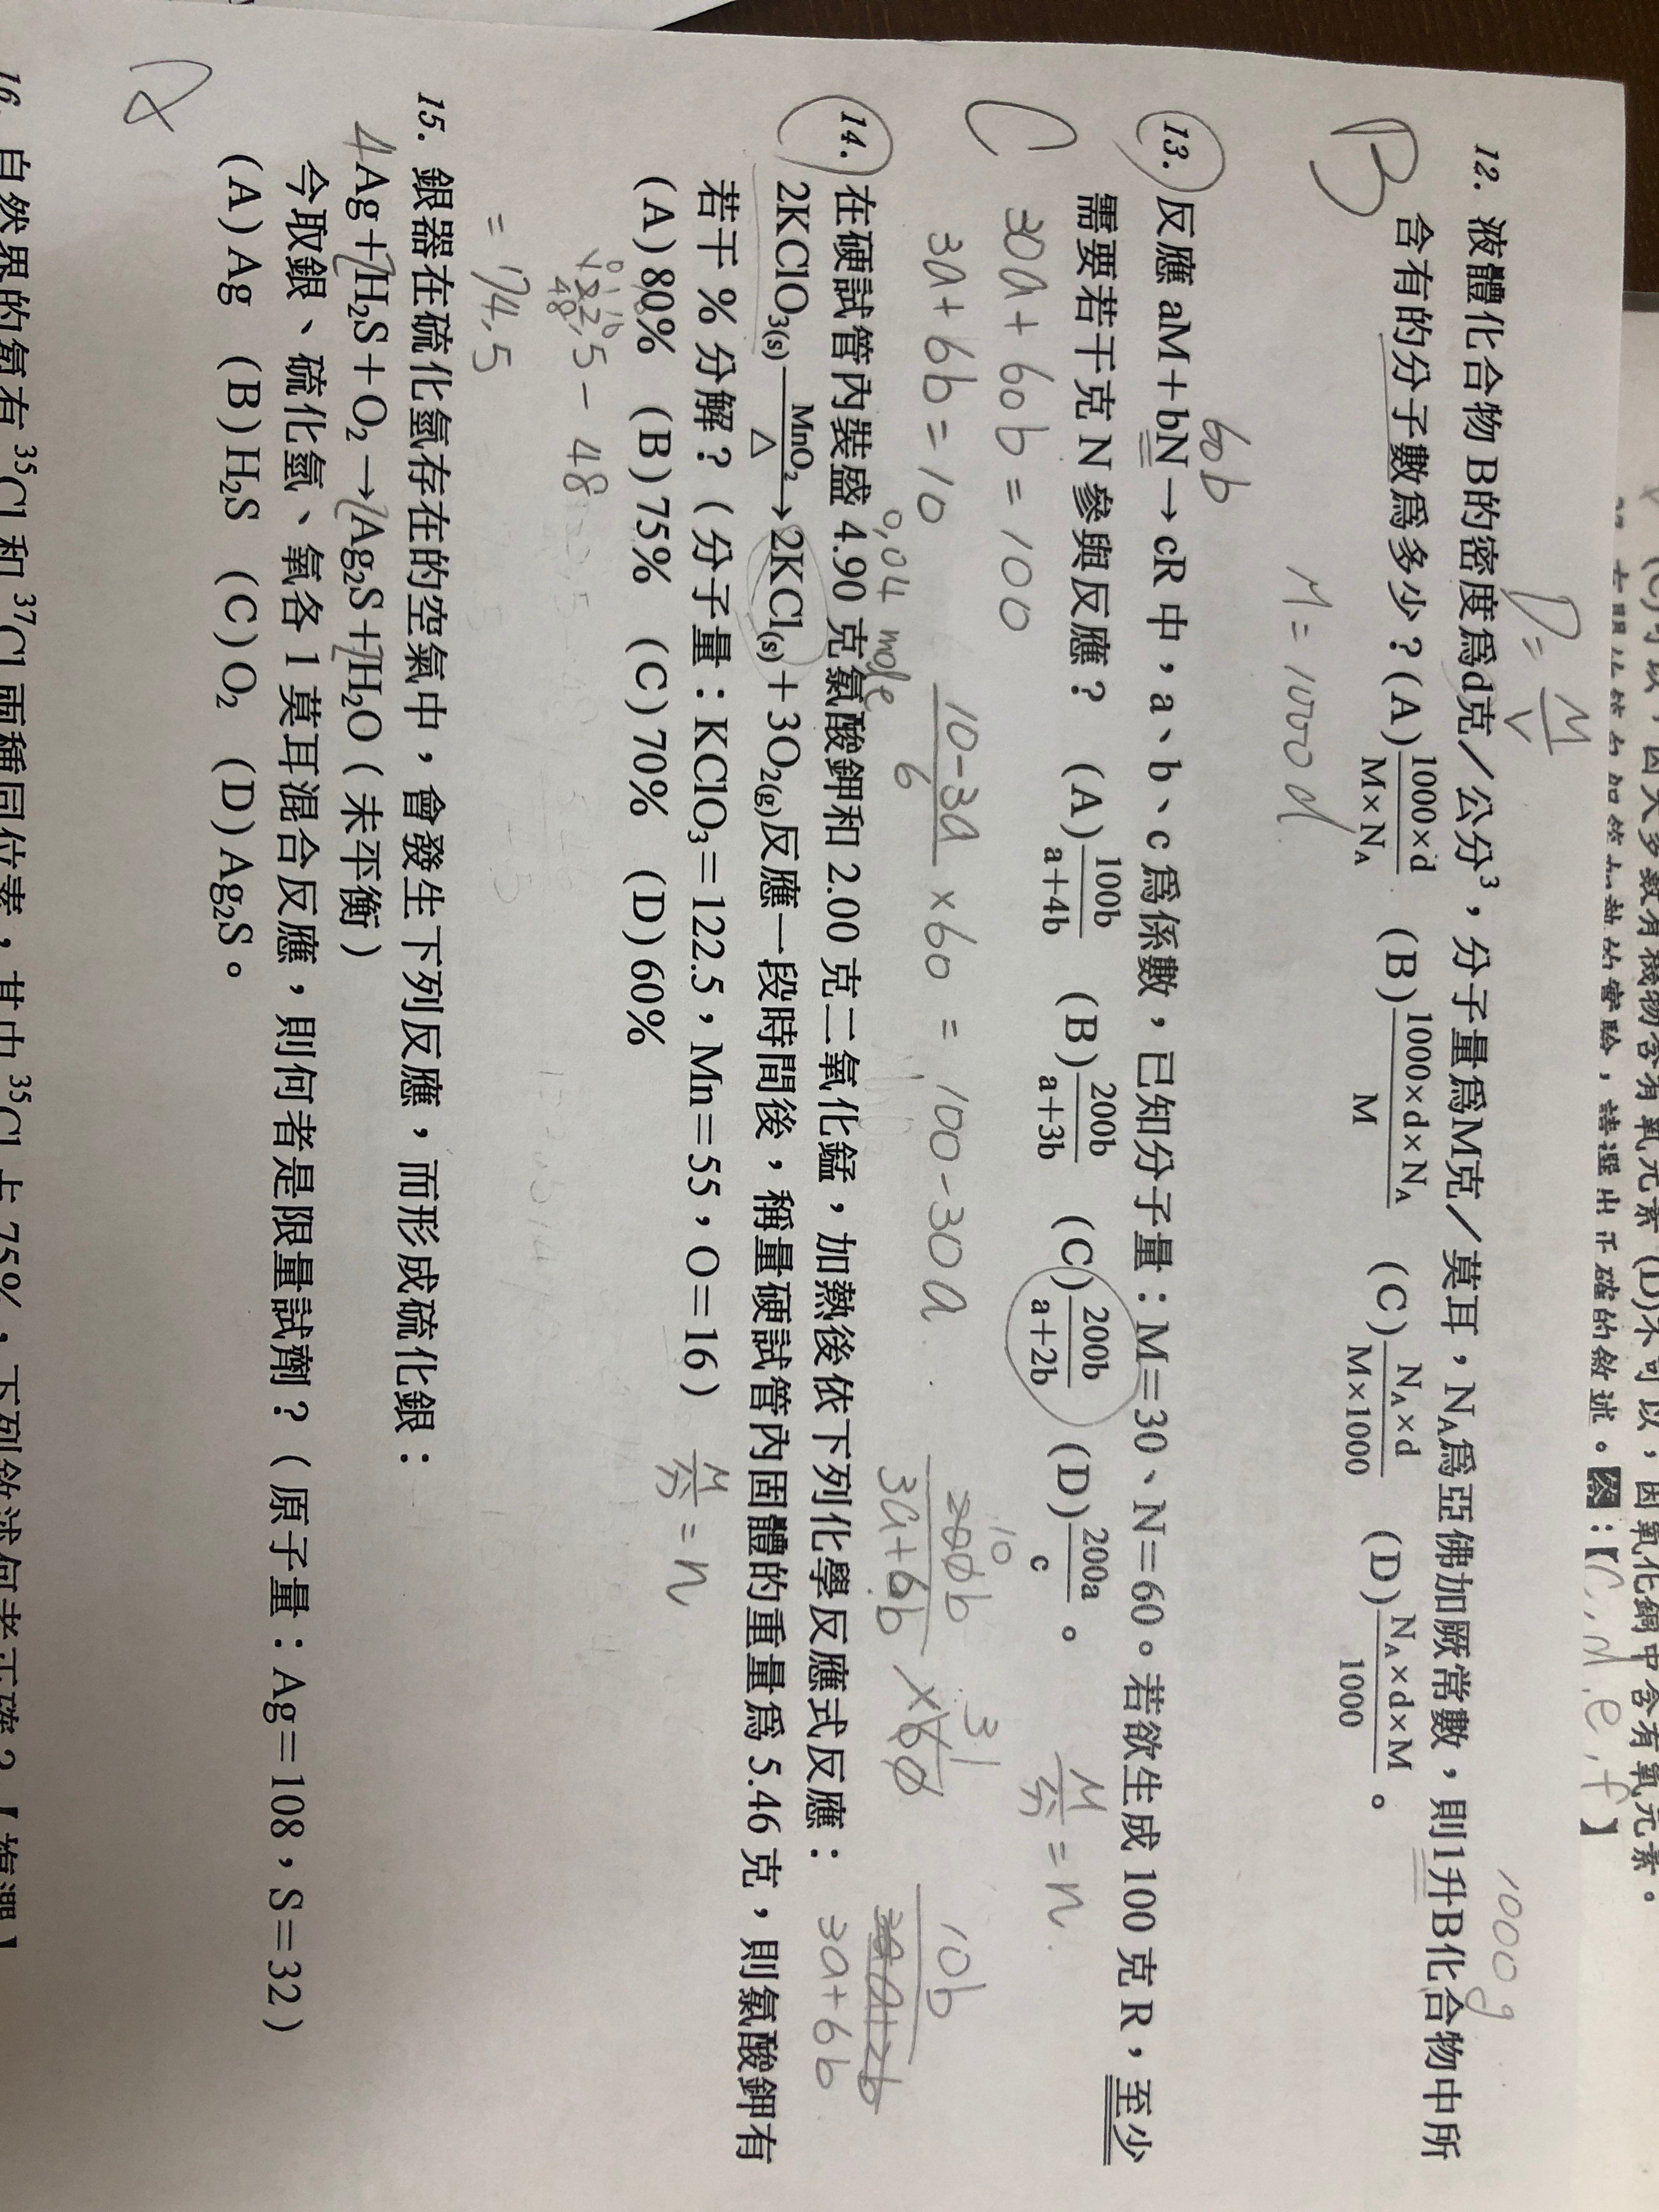 (C)可以，因大多數有機物含有氧元素 (D)不可以，因氧化銅中含有氧元素。
的實驗，請選出正確的敘述。答：【c, d, e, f】
D = M/V
1000 g
12. 液體化合物 B的密度爲d克／公分³，分子量爲M克／莫耳，N_A爲亞佛加厥常數，則1升B化合物中所
B 含有的分子數爲多少？(A) 1000×d/M×N_A (B) 1000×d×N_A/M (C) N_A×d/M×1000 (D) N_A×d×M/1000 。
M = 1000d
60b
13. 反應 aM＋bN→cR 中，a、b、c 爲係數，已知分子量：M＝30、N＝60。若欲生成 100 克 R，至少
需要若干克 N 參與反應？ (A) 100b/a＋4b (B) 200b/a＋3b (C) 200b/a＋2b (D) 200a/c 。
C 30a + 60b = 100
M/分 = n
3a + 6b = 10
10-3a/6 × 60 = 100-30a
10b/3a+6b
0.04 mole
14. 在硬試管內裝盛 4.90 克氯酸鉀和 2.00 克二氧化錳，加熱後依下列化學反應式反應：
2KClO₃(s) MnO₂/△→ 2KCl(s)＋3O₂(g)反應一段時間後，稱量硬試管內固體的重量爲 5.46 克，則氯酸鉀有
若干 % 分解？（分子量：KClO₃＝122.5，Mn＝55，O＝16）
M/分 = n
(A) 80% (B) 75% (C) 70% (D) 60%
122.5 - 48
= 74.5
15. 銀器在硫化氫存在的空氣中，會發生下列反應，而形成硫化銀：
4Ag＋2H₂S＋O₂→2Ag₂S＋2H₂O（未平衡）
今取銀、硫化氫、氧各 1 莫耳混合反應，則何者是限量試劑？（原子量：Ag＝108，S＝32）
(A) Ag (B) H₂S (C) O₂ (D) Ag₂S。
16. 自然界的氯有 ³⁵Cl 和 ³⁷Cl 兩種同位素，其中 ³⁵Cl 占 75%，下列敘述何者正確？【複選】